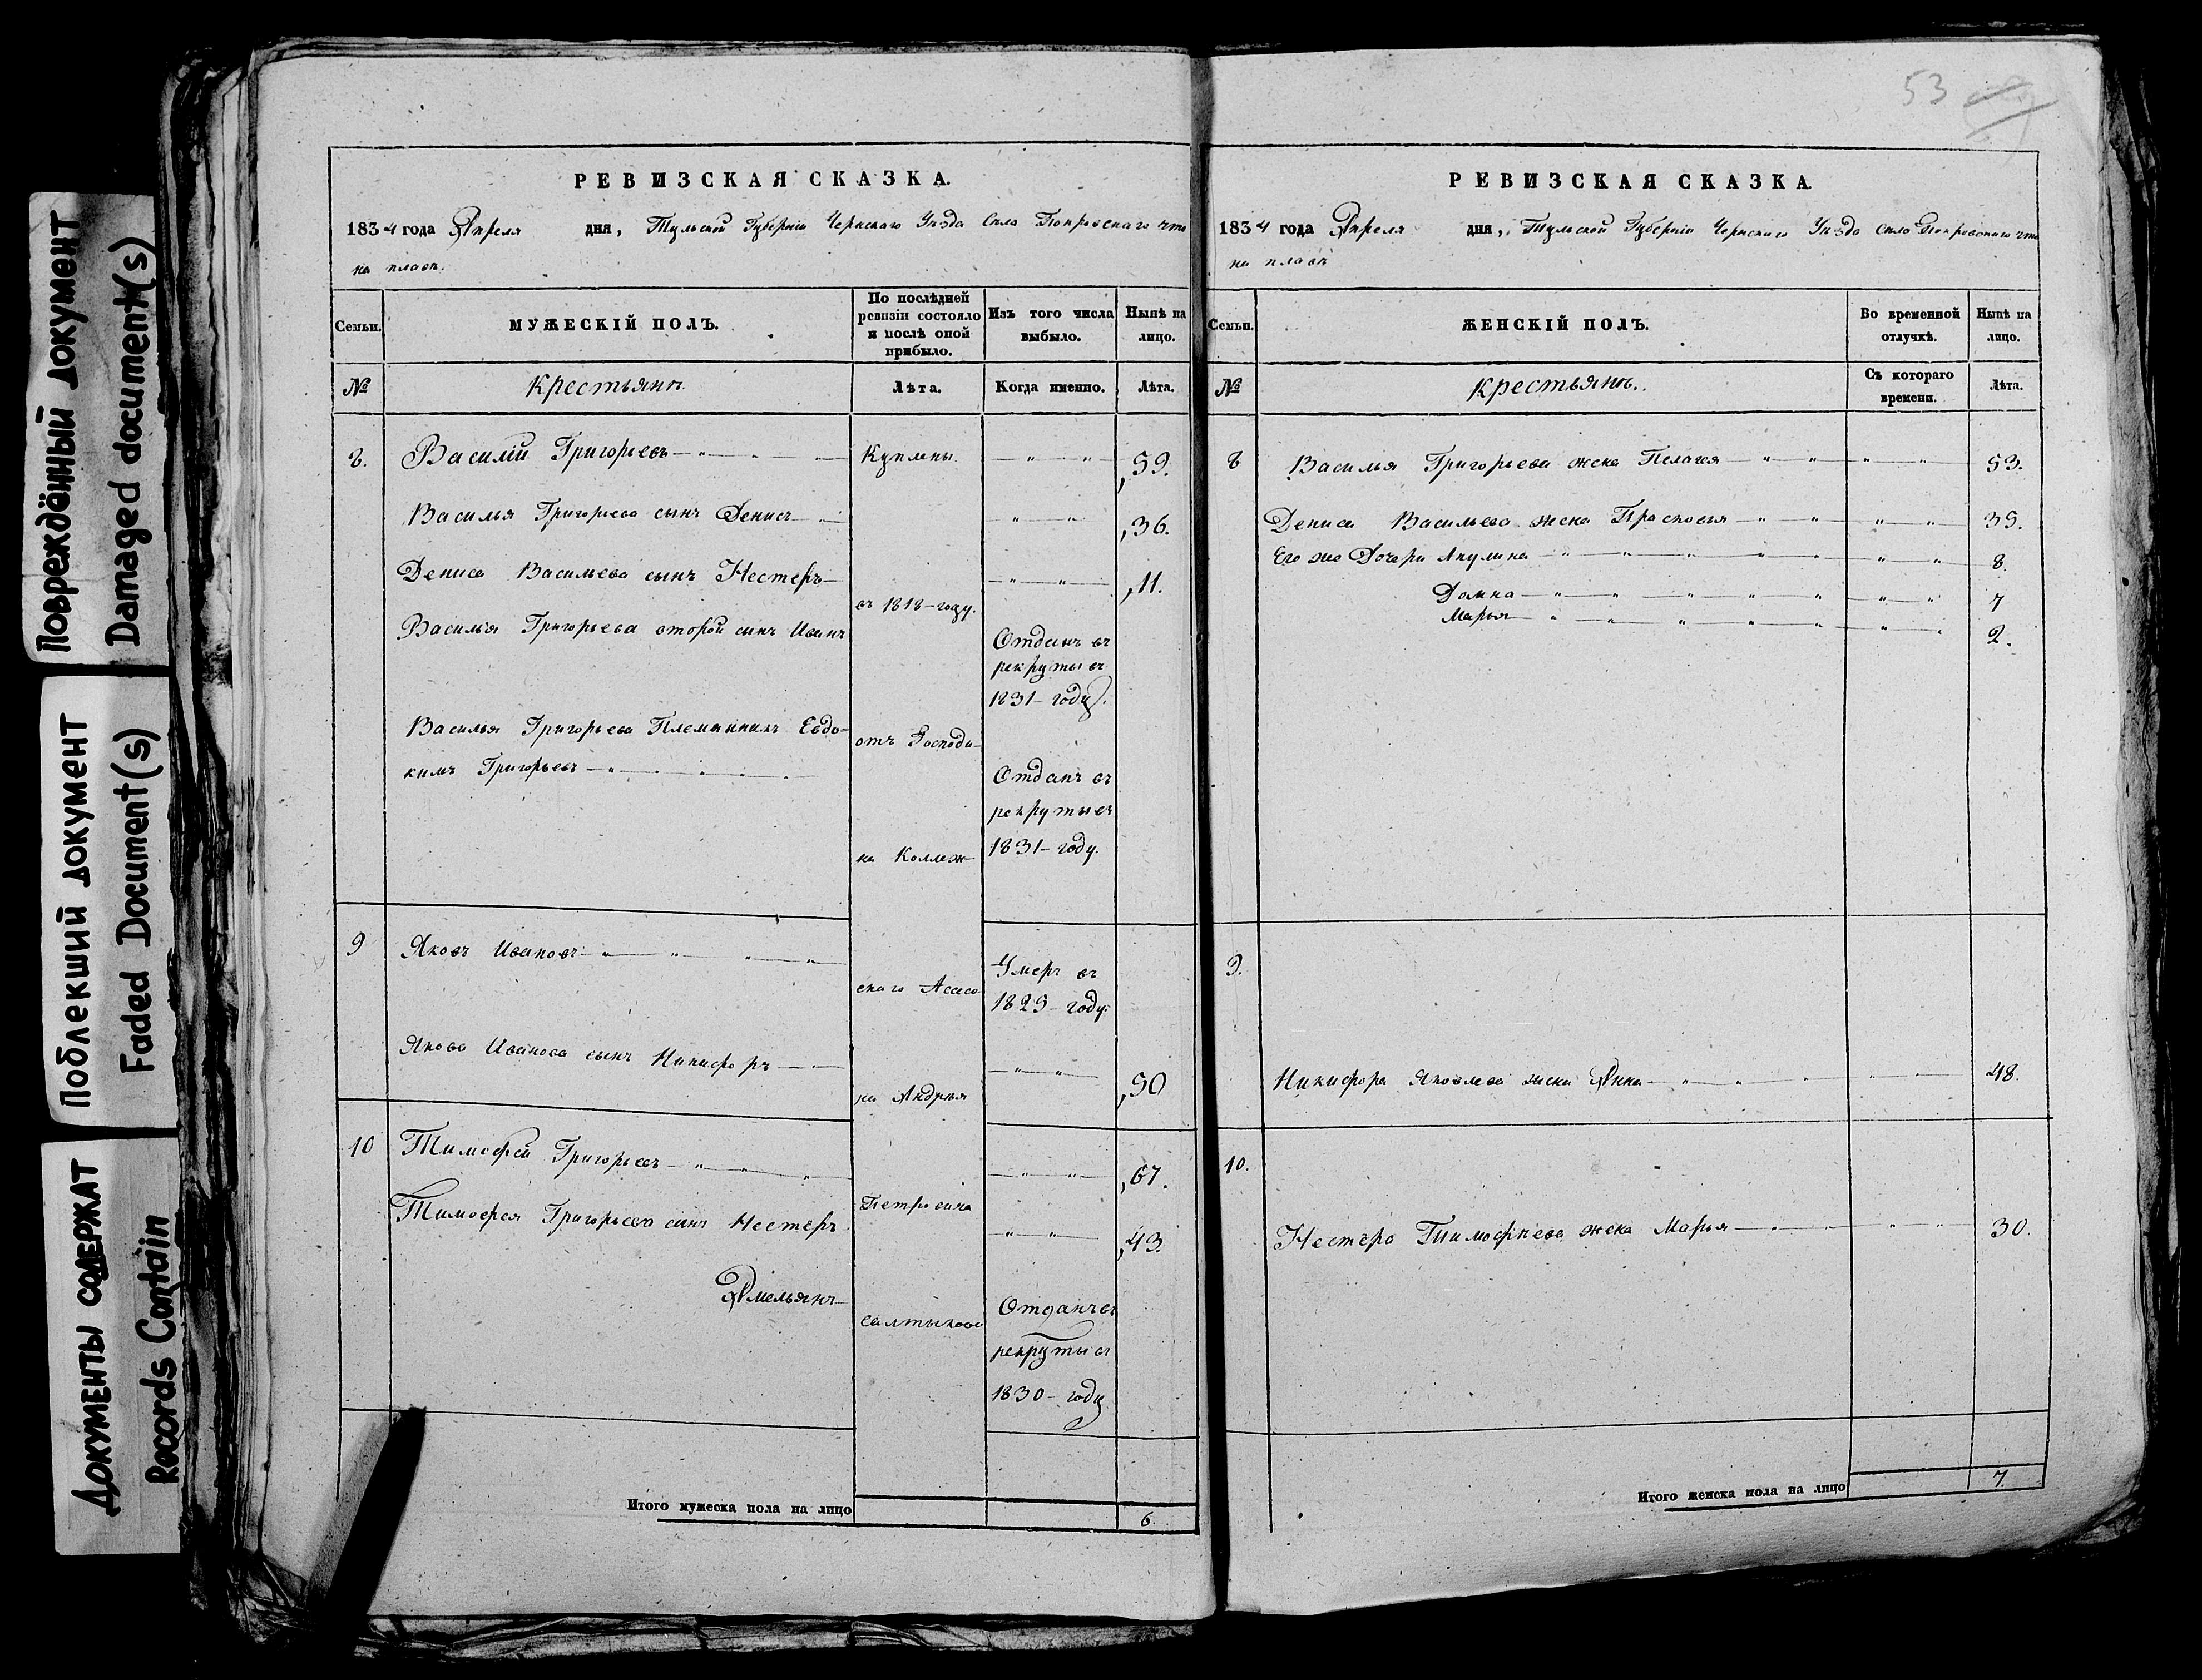 Повреждённый документ
Damaged document(s)
Поблекший документ
Faded Document(s)
Документы содержат
Records Contain
РЕВИЗСКАЯ СКАЗКА.
1834 года Апреля дня, Тульской Губернiи Чернскаго Уѣзда Села Покровскаго что
на плавѣ.
Семьи.
МУЖЕСКIЙ ПОЛЪ.
По послѣдней
ревизiи состояло
и послѣ оной
прибыло.
Изъ того числа
выбыло.
Нынѣ на
лицо.
№
Крестьянъ.
Лѣта.
Когда именно.
Лѣта.
8. Василiй Григорьевъ Куплены 59.
Василья Григорьева сынъ Денисъ 36.
Дениса Васильева сынъ Нестеръ 11.
въ 1818-году.
Василья Григорьева второй сынъ Иванъ
Отданъ въ
рекруты въ
1831-году.
Василья Григорьева Племянникъ Евдо-
кимъ Григорьевъ
отъ Господи-
Отданъ въ
рекруты въ
1831-году.
на Коллеж-
9 Яковъ Ивановъ
скаго Асесо-
Умеръ въ
1829-году.
Якова Иванова сынъ Никифоръ 50
ра Андрея
10 Тимофей Григорьевъ 67.
Петровича
Тимофея Григорьева сынъ Нестеръ 43.
Емельянъ
Салтыкова
Отданъ въ
рекруты въ
1830-году
Итого мужеска пола на лицо 6.
53
РЕВИЗСКАЯ СКАЗКА.
1834 года Апреля дня, Тульской Губернiи Чернскаго Уѣзда Села Покровскаго что
на плавѣ
Семьи.
ЖЕНСКIЙ ПОЛЪ.
Во временной
отлучкѣ.
Нынѣ на
лицо.
№
Крестьянъ.
Съ котораго
времени.
Лѣта.
8 Василья Григорьева жена Пелагея 53.
Дениса Васильева жена Прасковья 35.
Его же Дочери Акулина 8.
Домна 7
Марья 2.
9.
Никифора Яковлева жена Анна 48.
10.
Нестера Тимофѣева жена Марья 30.
Итого женска пола на лицо 7.